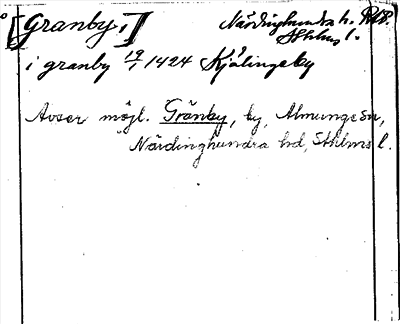 [Granby,] Närdinghundra h. RUB.
Sthlms l.
i granby 19/1 1424 Kjälingeby
Avser möjl. Gränby, by, Almunge sn,
Närdinghundra hd, Sthlms l.